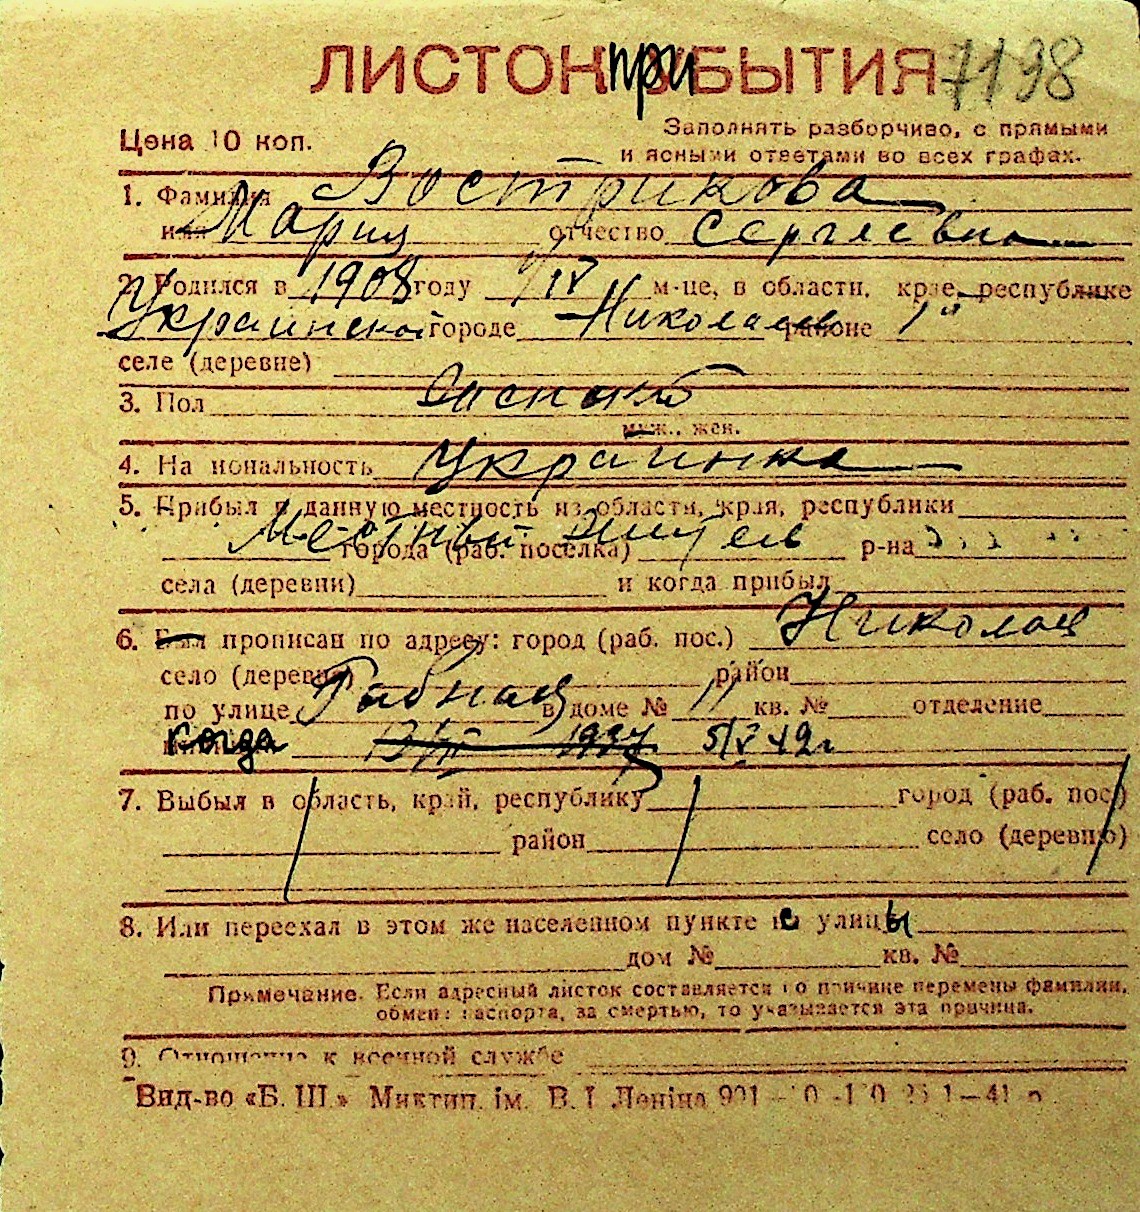 ЛИСТОК прИБЫТИЯ 7198
Цена 10 коп.
Заполнять разборчиво, с прямыми
и ясными ответами во всех графах.
1. Фамилия Вострикова
имя Мария отчество Сергеевна
2. Родился в 1908 году IV м-це, в области, крае, республике
Украинской городе Николаев районе
селе (деревне)
3. Пол
муж., жен.
4. Национальность Украинка
5. Прибыл в данную местность из области, края, республики
Местный города (раб. поселка) р-на
села (деревни) и когда прибыл
6. Был прописан по адресу: город (раб. пос.) Николаев
село (деревня) район
по улице в доме № 11 кв. № отделение
когда 1937 5/V 42 г
7. Выбыл в область, край, республику город (раб. пос.)
район село (деревню)
8. Или переехал в этом же населенном пункте с улицы
дом № кв. №
Примечание. Если адресный листок составляется по причине перемены фамилии,
обмена паспорта, за смертью, то указывается эта причина.
9. Отношение к военной службе
Вид-во «Б. Ш.» Миктип. ім. В. І. Леніна